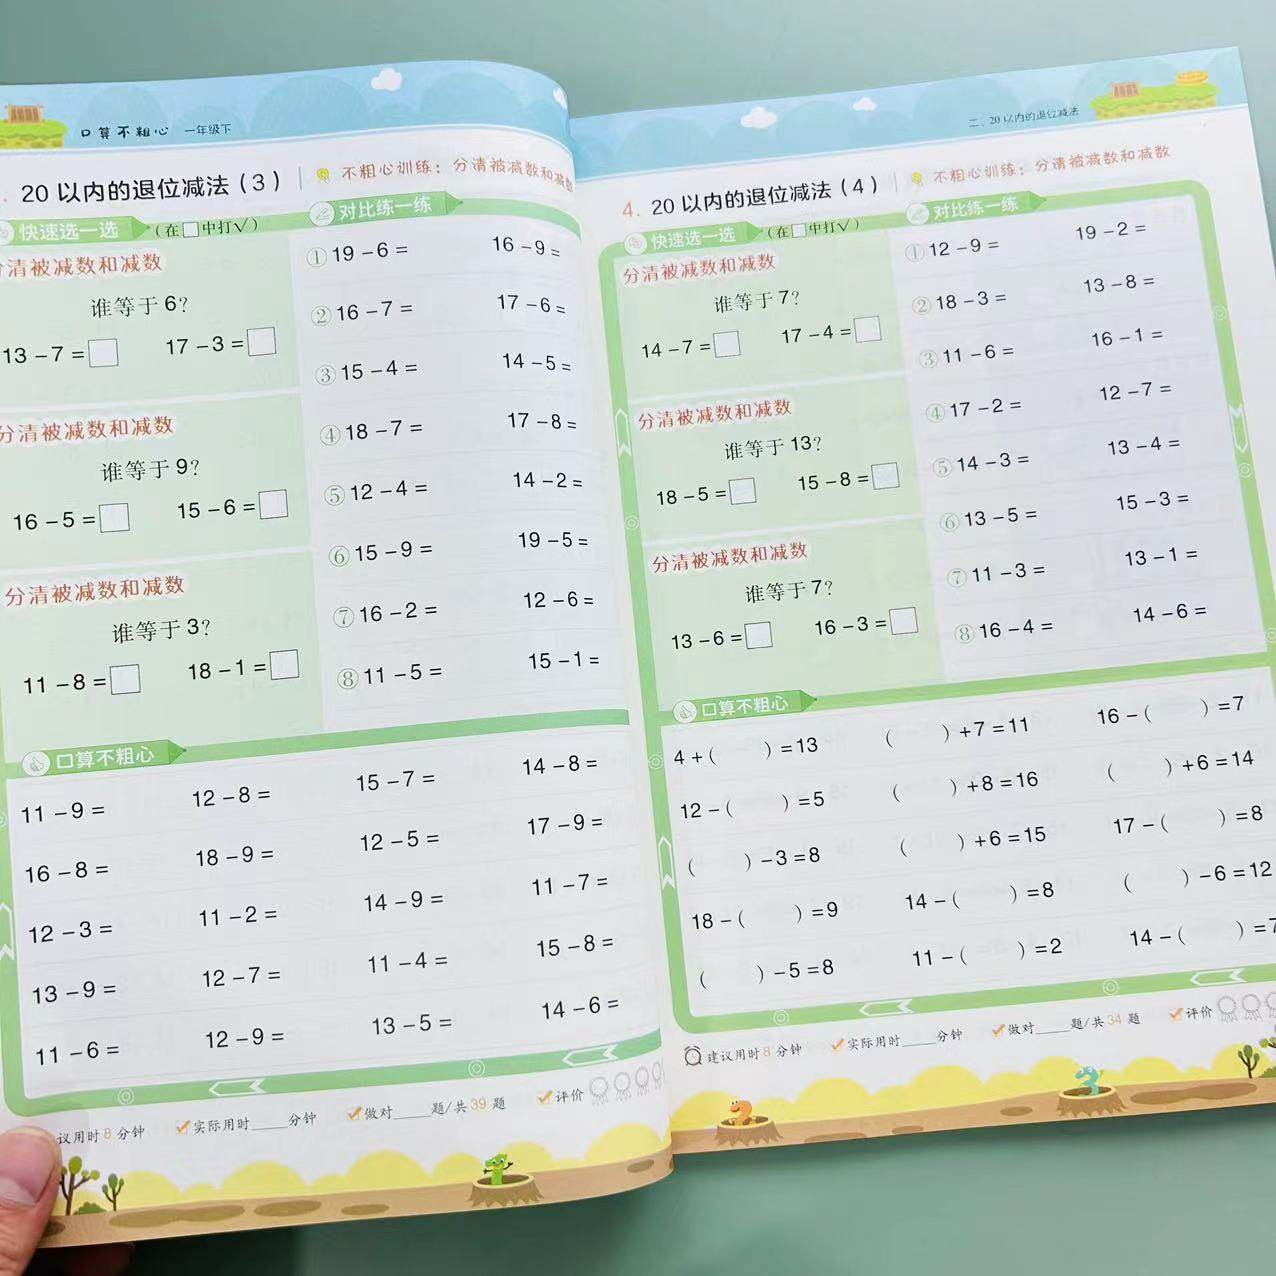 口算不粗心 一年级下
20以内的退位减法(3)
不粗心训练：分清被减数和减数
快速选一选 (在□中打√)
分清被减数和减数
谁等于6?
13-7=□ 17-3=□
分清被减数和减数
谁等于9?
16-5=□ 15-6=□
分清被减数和减数
谁等于3?
11-8=□ 18-1=□
对比练一练
①19-6= 16-9=
②16-7= 17-6=
③15-4= 14-5=
④18-7= 17-8=
⑤12-4= 14-2=
⑥15-9= 19-5=
⑦16-2= 12-6=
⑧11-5= 15-1=
口算不粗心
11-9= 12-8= 15-7= 14-8=
16-8= 18-9= 12-5= 17-9=
12-3= 11-2= 14-9= 11-7=
13-9= 12-7= 11-4= 15-8=
11-6= 12-9= 13-5= 14-6=
议用时8分钟 实际用时____分钟 做对____题/共39题 评价
二、20以内的退位减法
4. 20以内的退位减法(4)
不粗心训练：分清被减数和减数
快速选一选 (在□中打√)
分清被减数和减数
谁等于7?
14-7=□ 17-4=□
分清被减数和减数
谁等于13?
18-5=□ 15-8=□
分清被减数和减数
谁等于7?
13-6=□ 16-3=□
对比练一练
①12-9= 19-2=
②18-3= 13-8=
③11-6= 16-1=
④17-2= 12-7=
⑤14-3= 13-4=
⑥13-5= 15-3=
⑦11-3= 13-1=
⑧16-4= 14-6=
口算不粗心
4+( )=13 ( )+7=11 16-( )=7
12-( )=5 ( )+8=16 ( )+6=14
( )-3=8 ( )+6=15 17-( )=8
18-( )=9 14-( )=8 ( )-6=12
( )-5=8 11-( )=2 14-( )=7
建议用时8分钟 实际用时____分钟 做对____题/共34题 评价